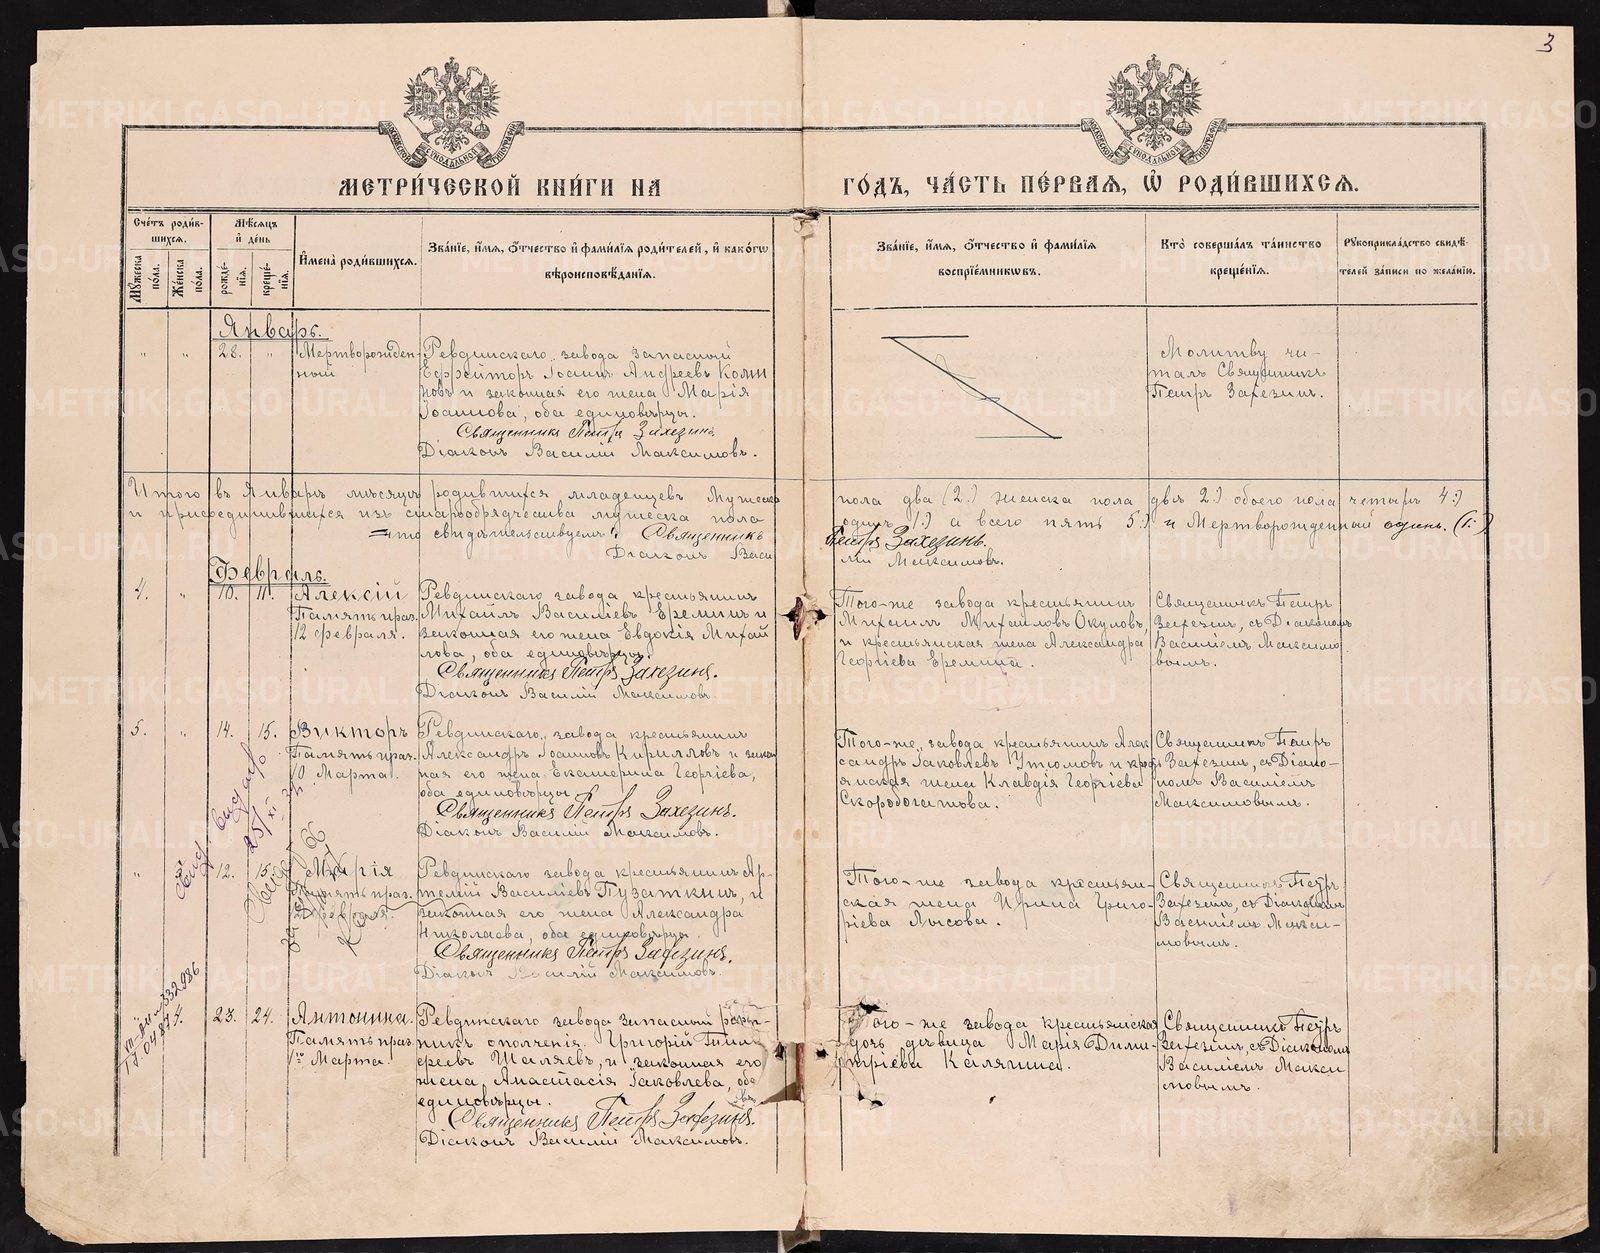 3
МЕТРИ́ЧЕСКОЙ КНИ́ГИ НА
ГО́ДЪ, ЧА́СТЬ ПЕ́РВАЯ, Ѡ҆ РОДИ́ВШИХСЯ.
Сче́тъ роди́в-
шихся.
Мѣ́сяцъ
и҆ де́нь
Му́жеска по́ла.
Же́нска по́ла.
рожде́-
нїя.
креще́-
нїя.
И҆мена̀ роди́вшихся.
Зва́нїе, и҆́мя, ѻ҆́тчество и҆ фами́лїя роди́телей, и҆ како́гѡ
вѣроисповѣ́данїя.
Зва́нїе, и҆́мя, ѻ҆́тчество и҆ фами́лїя
воспрїе́мникѡвъ.
Кто̀ соверша́лъ та́инство
креще́нїя.
Рꙋкоприкла́дство свидѣ́-
телей за́писи по жела́нїю.
Январь.
" " 28. " Мертворожден-
ный
Ревдинскаго завода запасный
Ефрейторъ Іоаннъ Андреевъ
новъ и законная его жена Марія
Іоаннова, оба единовѣрцы.
Священникъ Петръ Захезинъ.
Діаконъ Василій Максимовъ.
Молитву чи-
талъ Священникъ
Петръ Захезинъ.
Итого въ Январѣ мѣсяцѣ родившихся младенцевъ Мужеска пола два (2.) женска пола двѣ 2.) обоего пола четыре 4.)
и присоединившихся изъ старообрядчества мужеска пола одинъ 1.) а всего пять 5.) и Мертворожденный одинъ. (1.)
что свидѣтельствуемъ: Священникъ Петръ Захезинъ.
Діаконъ Василій Максимовъ.
Февраль.
4. " 10. 11. Алексій
Память праз.
12 февраля.
Ревдинскаго завода крестьянинъ
Михаилъ Василіевъ Ереминъ и
законная его жена Евдокія Михай
лова, оба единовѣрцы.
Священникъ Петръ Захезинъ.
Діаконъ Василій Максимовъ.
Того-же завода крестьянинъ
Михаилъ Михаиловъ Окуловъ,
и крестьянская жена Александра
Георгіева Еремина.
Священникъ Петръ
Захезинъ, съ Діакономъ
Василіемъ Максимо
вымъ.
5. " 14. 15. Викторъ
Память праз.
10 Марта.
Ревдинскаго завода крестьянинъ
Александръ Іоанновъ Кирилловъ и закон
ная его жена Екатерина Георгіева,
оба единовѣрцы
Священникъ Петръ Захезинъ.
Діаконъ Василій Максимовъ.
Того-же завода крестьянинъ Алек
сандръ Іаковлевъ Утюмовъ и кресть
янская жена Клавдія Георгіева
Скоробогатова.
Священникъ Петръ
Захезинъ, съ Діако-
номъ Василіемъ
Максимовымъ.
" 12. 15. Марія
Память праз.
12 Февраля.
Ревдинскаго завода крестьянинъ Ар-
темій Василіевъ Пузаткинъ, и
законная его жена Александра
Николаева, оба единовѣрцы.
Священникъ Петръ Захезинъ.
Діаконъ Василій Максимовъ.
Того-же завода крестьян-
ская жена Ирина Григо-
ріева Лысова.
Священникъ Петръ
Захезинъ, съ Діакономъ
Василіемъ Макси-
мовымъ.
332986
" 4. 23. 24. Антонина.
Память праз.
1го Марта.
Ревдинскаго завода запасный рат-
никъ ополченія Григорій
Шаляевъ, и законная его
жена Анастасія Іаковлева, оба
единовѣрцы.
Священникъ Петръ Захезинъ.
Діаконъ Василій Максимовъ.
Того-же завода крестьянская
дочь дѣвица Марія Дими-
тріева Калягина.
Священникъ Петръ
Захезинъ, съ Діакономъ
Василіемъ Макси
мовымъ.
METRIKI.GASO-URAL.RU